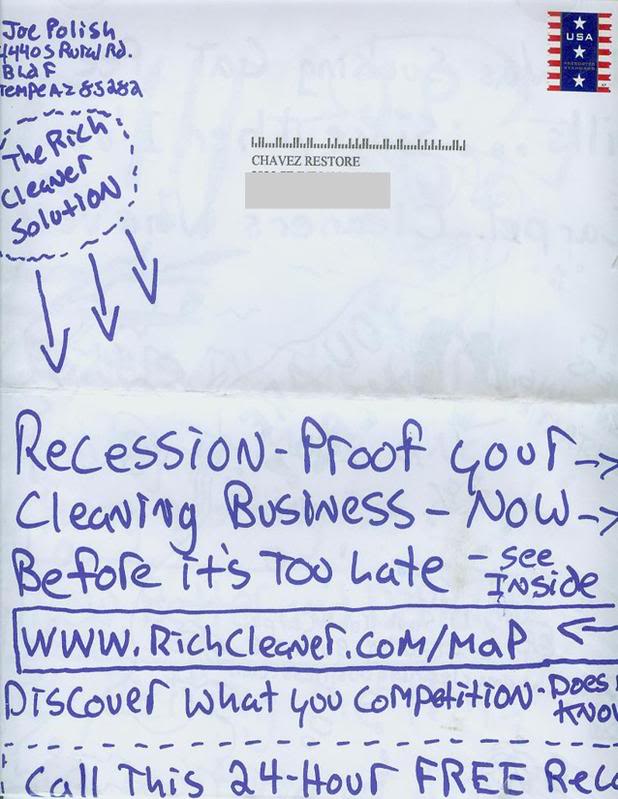 Joe Polish
4440 S Rural Rd.
BLd F
Tempe AZ 85282
USA
PRESORTED
STANDARD
The Rich
Cleaner
Solution
CHAVEZ RESTORE
Recession-Proof your
Cleaning Business - NOW
Before it's Too Late - see
Inside
www.RichCleaner.com/map
Discover what you competition - Does
Know
Call This 24-Hour FREE Reco